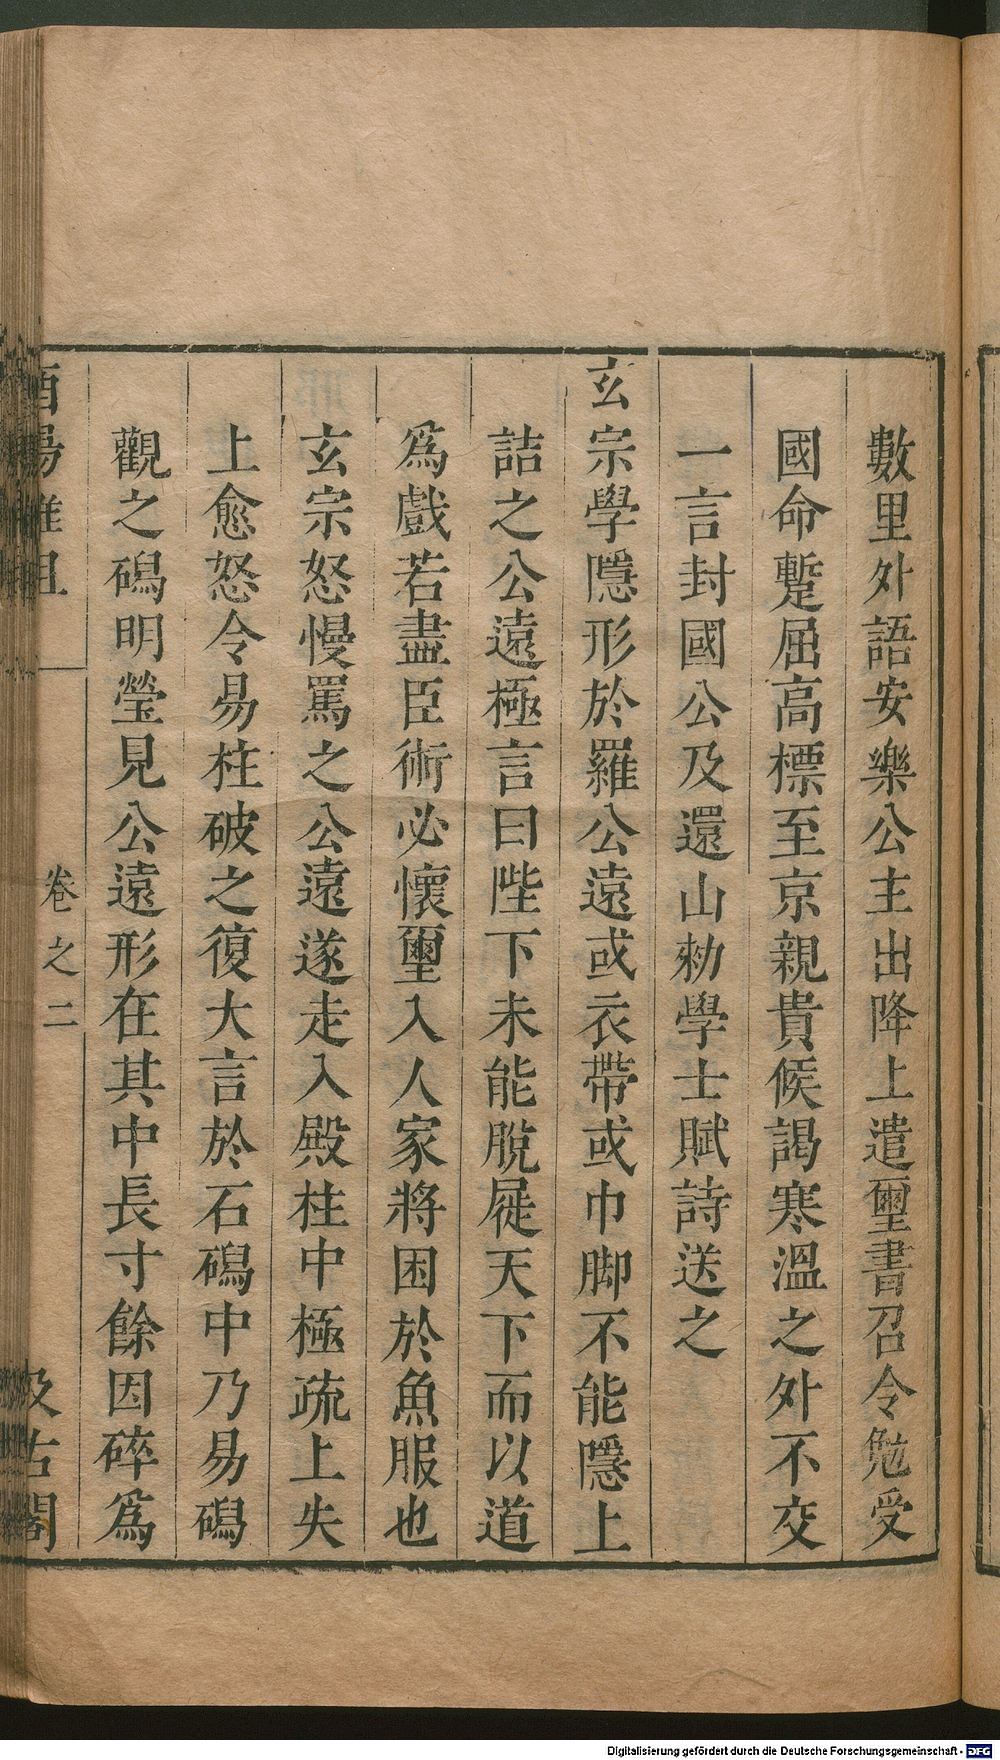 數里外語安樂公主出降上遣璽書召令勉受
國命蹔屈高標至京親貴候謁寒溫之外不交
一言封國公及還山勑學士賦詩送之
玄宗學隱形於羅公遠或衣帶或巾脚不能隱上
詰之公遠極言曰陛下未能脫屣天下而以道
爲戲若盡臣術必懷璽入人家將困於魚服也
玄宗怒慢罵之公遠遂走入殿柱中極疏上失
上愈怒令易柱破之復大言於石磶中乃易磶
觀之磶明瑩見公遠形在其中長寸餘因碎爲
酉陽雜俎 卷之二 汲古閣
Digitalisierung gefördert durch die Deutsche Forschungsgemeinschaft - DFG